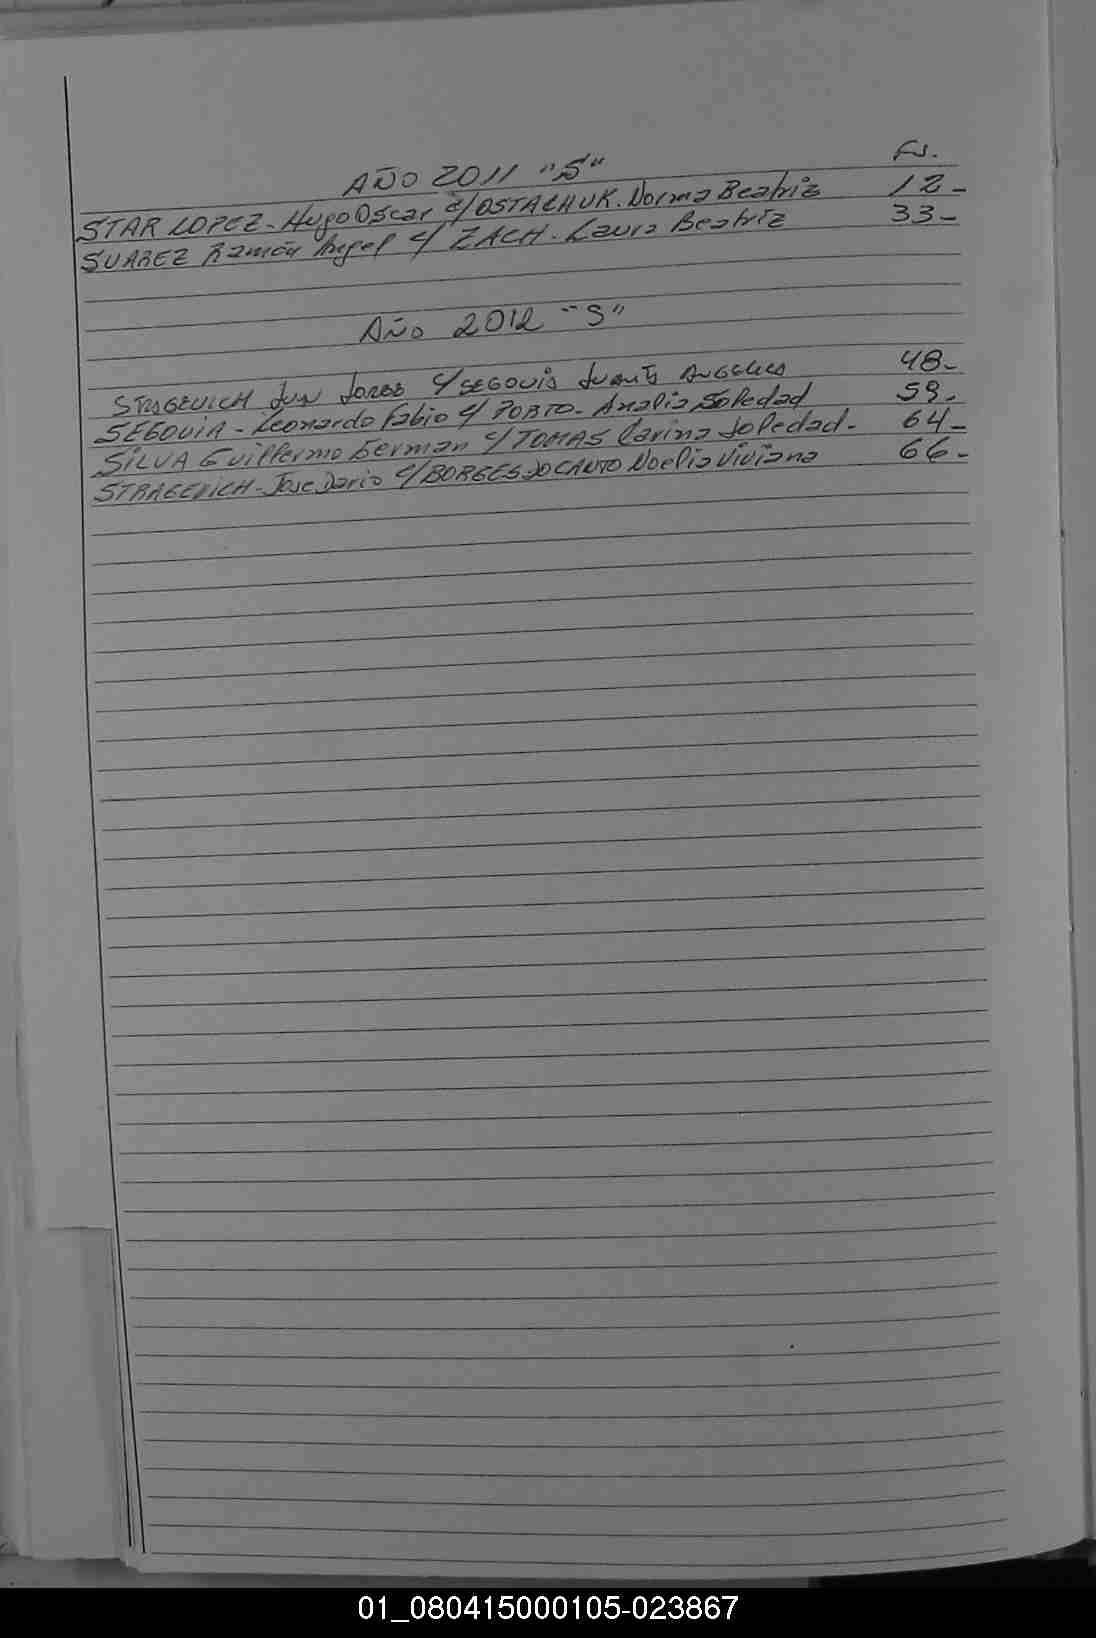 Fs.
AÑO 2011 "S"
STAR LOPEZ - Hugo Oscar c/ OSTACHUK. Norma Beatriz 12-
SUAREZ Ramón Angel c/ ZACH. Laura Beatriz 33-
Año 2012 "S"
STRAGEVICH Juan Jorge c/ SEGOVIA Juanita Angelica 48-
SEGOVIA - Leonardo Fabio c/ PORTO - Analia Soledad 59-
SILVA Guillermo German c/ TOMAS Carina Soledad - 64-
STRAGEVICH - Jose Dario c/ BORGES DO CANTO Noelia Viviana 66-
01_080415000105-023867